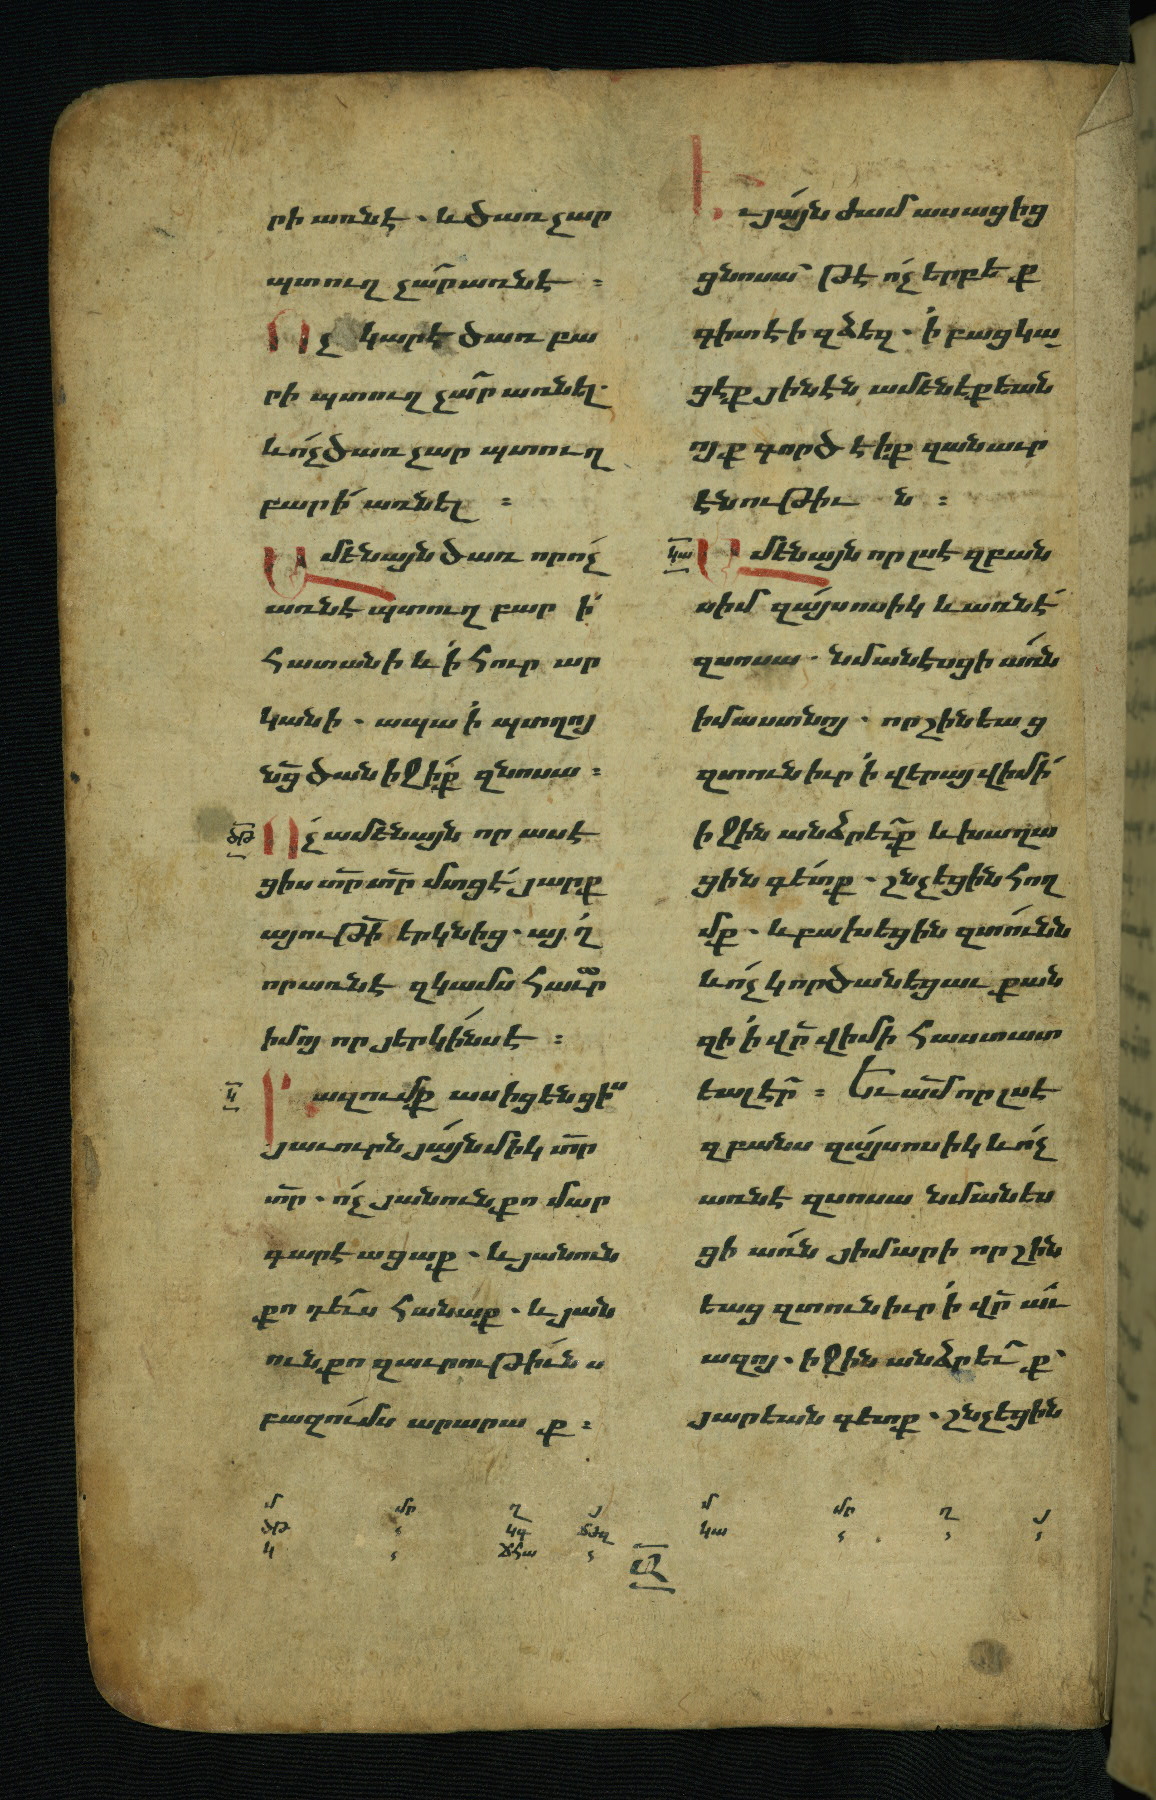 րի առնէ . և ծառ չար
պտուղ չար առնէ ։
Ոչ կարէ ծառ բա
րի պտուղ չար առնել .
և ոչ ծառ չար պտուղ
բարի առնել ։
Ամենայն ծառ որ ոչ
առնէ պտուղ բարի
հատանի և ի հուր ար
կանի . ապա ի պտղոյ
նց ծանիջիք զնոսա ։
ծթ Ոչ ամենայն որ ասէ
ցիս տր տր մտցէ յարք
այութի երկնից . այղ
որ առնէ զկամս հաւր
իմոյ որ յերկինս է ։
կ Բազումք ասիցեն ցիս
յաւուրն յայնմիկ տր
տր . ոչ յանուն քո մար
գարէացաք . և յանուն
քո դևս հանաք . և յան
ուն քո զաւրութիւնս
բազումս արարաք ։
Յայնժամ ասացից
ցնոսա թէ ոչ երբեք
գիտէի զձեզ . ի բաց կա
ցէք յինէն ամենեքեան
ոյք գործէիք զանաւր
էնութիւն ։
կա Ամենայն որ լսէ զբան
ս իմ զայսոսիկ և առնէ
զսոսա . նմանեսցի առն
իմաստնոյ . որ շինեաց
զտուն իւր ի վերայ վիմի
իջին անձրևք և խաղա
ցին գետք . շնչեցին հող
մք . և բախեցին զտունն
և ոչ կործանեցաւ քան
զի ի վր վիմի հաստատ
եալ էր ։ Եւ ամ որ լսէ
զբանս զայսոսիկ և ոչ
առնէ զսոսա նմանես
ցի առն յիմարի որ շին
եաց զտուն իւր ի վր աւ
ազոյ . իջին անձրևք
յարեան գետք . շնչեցին
մ մր ղ յ
ծթ կգ ճհզ
կ ճհա
մ մր ղ յ
կա